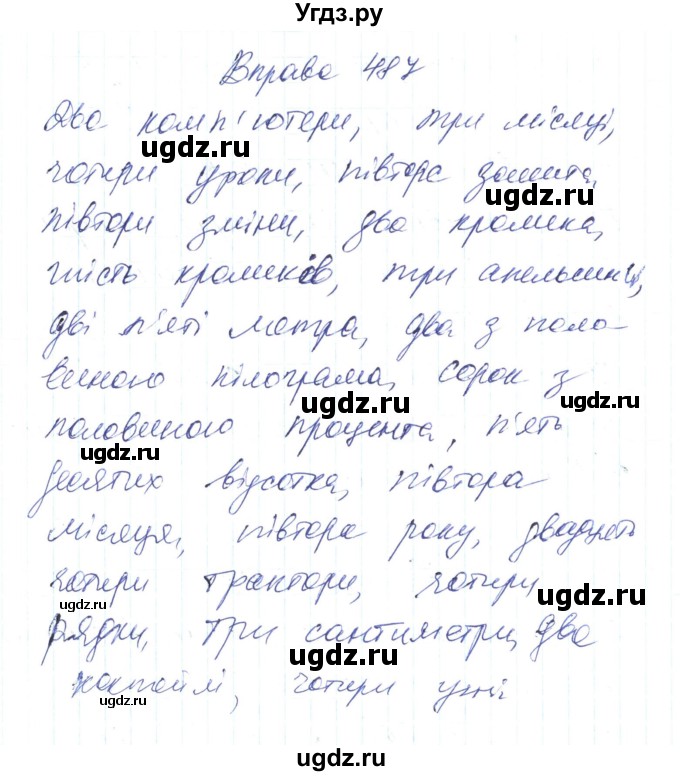 Угдз.ру
Вправа 487
Два комп'ютери, три місяці,
ugdz.ru
чотири уроки, півтора зошита,
ugdz.ru
півтори зміни, два кролика,
шість кроликів, три апельсини,
ugdz.ru
дві п'яті метра, два з поло-
виною кілограма, сорок з
ugdz.ru
ugdz.ru
половиною процента, п'ять
ugdz.ru
десятих відсотка, півтора
місяця, півтора року, двадцять
ugdz.ru
чотири трактори, чотири
ugdz.ru
ugdz.ru
рядки, три сантиметри, два
ugdz.ru
коктейлі, чотири
ugdz.ru
ugdz.ru